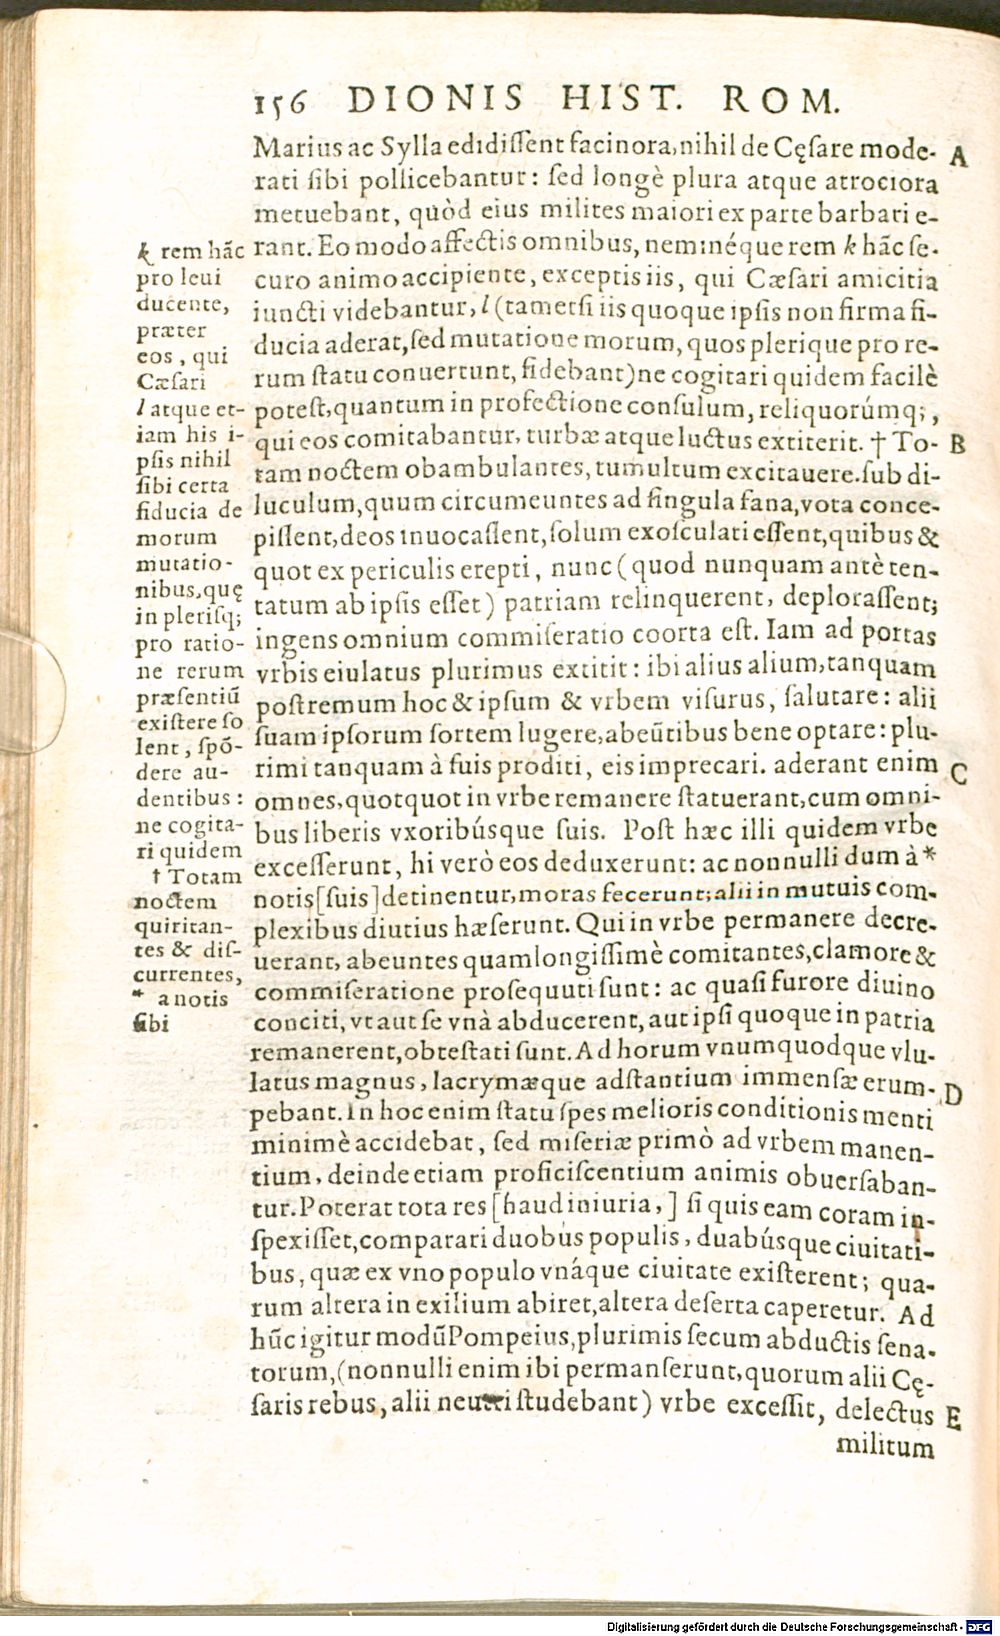 156 DIONIS HIST. ROM.
Marius ac Sylla edidiſſent facinora, nihil de Cęſare mode-
rati ſibi pollicebantur: ſed longè plura atque atrociora
metuebant, quòd eius milites maiori ex parte barbari e-
rant. Eo modo affectis omnibus, neminéque rem k hāc ſe-
curo animo accipiente, exceptis iis, qui Cæſari amicitia
iuncti videbantur, l (tametſi iis quoque ipſis non firma fi-
ducia aderat, ſed mutatione morum, quos plerique pro re-
rum ſtatu conuertunt, fidebant) ne cogitari quidem facilè
poteſt, quantum in profectione conſulum, reliquorúmq;,
qui eos comitabantur, turbæ atque luctus extiterit. † To-
tam noctem obambulantes, tumultum excitauere. ſub di-
luculum, quum circumeuntes ad ſingula fana, vota conce-
piſſent, deos inuocaſſent, ſolum exoſculati eſſent, quibus &
quot ex periculis erepti, nunc (quod nunquam antè ten-
tatum ab ipſis eſſet) patriam relinquerent, deploraſſent;
ingens omnium commiſeratio coorta eſt. Iam ad portas
vrbis eiulatus plurimus extitit: ibi alius alium, tanquam
poſtremum hoc & ipſum & vrbem viſurus, ſalutare: alii
ſuam ipſorum ſortem lugere, abeūtibus bene optare: plu-
rimi tanquam à ſuis proditi, eis imprecari. aderant enim
omnes, quotquot in vrbe remanere ſtatuerant, cum omni-
bus liberis vxoribúsque ſuis. Poſt hæc illi quidem vrbe
exceſſerunt, hi verò eos deduxerunt: ac nonnulli dum à *
notis [ſuis] detinentur, moras fecerunt; alii in mutuis com-
plexibus diutius hæſerunt. Qui in vrbe permanere decre-
uerant, abeuntes quamlongiſſimè comitantes, clamore &
commiſeratione proſequuti ſunt: ac quaſi furore diuino
conciti, vt aut ſe vnà abducerent, aut ipſi quoque in patria
remanerent, obteſtati ſunt. Ad horum vnumquodque vlu-
latus magnus, lacrymæque adſtantium immenſæ erum-
pebant. In hoc enim ſtatu ſpes melioris conditionis menti
minimè accidebat, ſed miſeriæ primò ad vrbem manen-
tium, deinde etiam proficiſcentium animis obuerſaban-
tur. Poterat tota res [haud iniuria,] ſi quis eam coram in-
ſpexiſſet, comparari duobus populis, duabúsque ciuitati-
bus, quæ ex vno populo vnáque ciuitate exiſterent; qua-
rum altera in exilium abiret, altera deſerta caperetur. Ad
hūc igitur modū Pompeius, plurimis ſecum abductis ſena-
torum, (nonnulli enim ibi permanſerunt, quorum alii Cę-
ſaris rebus, alii neutri ſtudebant) vrbe exceſſit, delectus
militum
A
B
C
D
E
k rem hāc
pro leui
ducente,
præter
eos, qui
Cæſari
l atque et-
iam his i-
pſis nihil
ſibi certa
fiducia de
morum
mutatio-
nibus, quę
in pleriſq;
pro ratio-
ne rerum
præſentiū
exiſtere ſo
lent, ſpō-
dere au-
dentibus:
ne cogita-
ri quidem
† Totam
noctem
quiritan-
tes & diſ-
currentes,
* a notis
ſibi
Digitalisierung gefördert durch die Deutsche Forschungsgemeinschaft - DFG